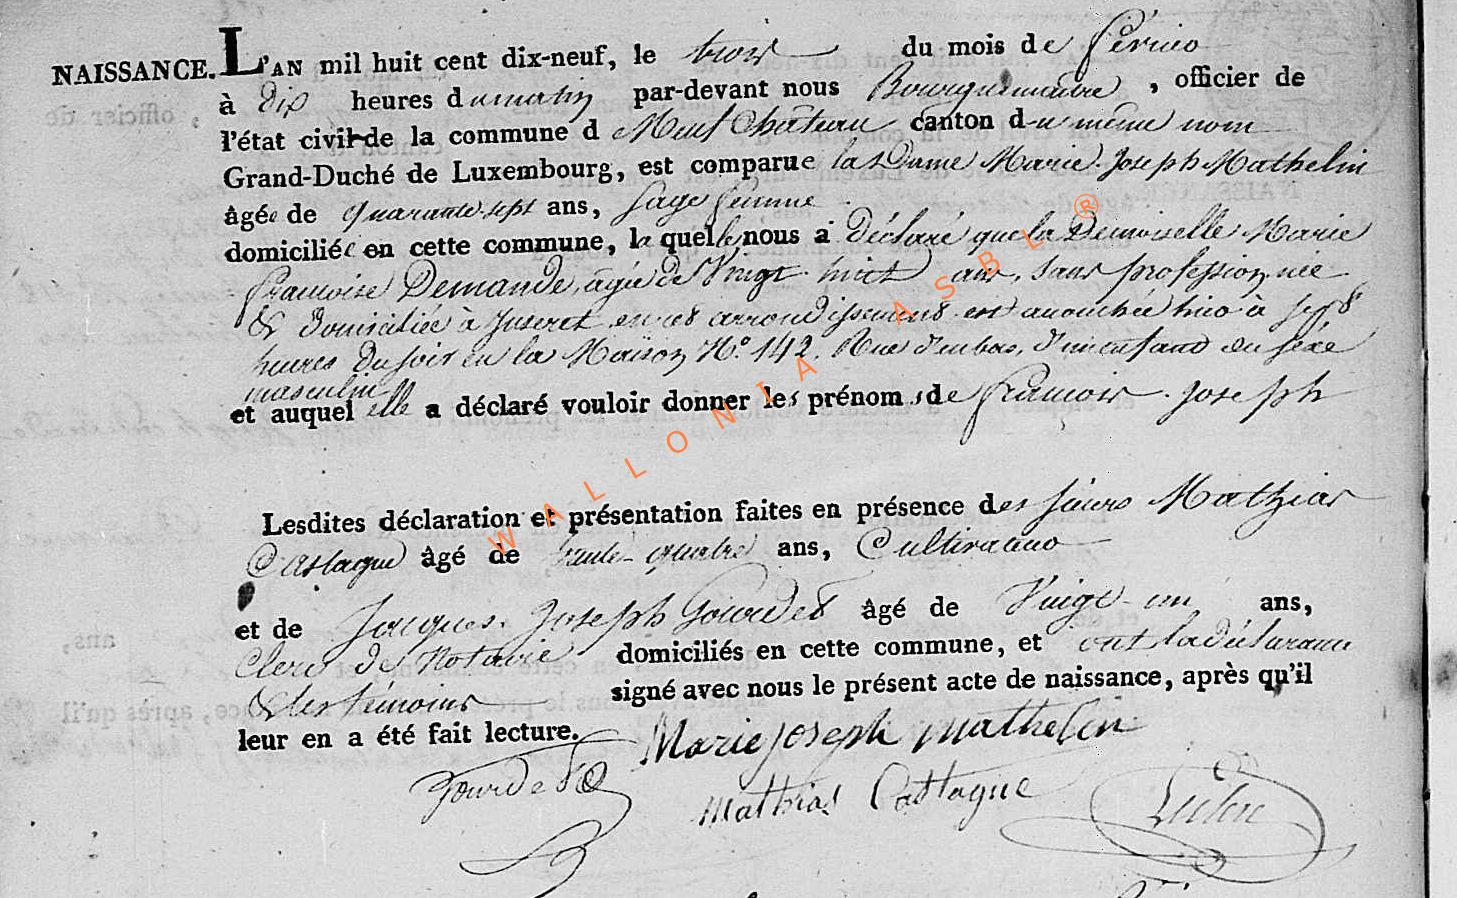 NAISSANCE. L'AN mil huit cent dix-neuf, le trois du mois de février
à dix heures du matin par-devant nous Bourguemaitre, officier de
l'état civil de la commune d Neufchâteau canton du même nom
Grand-Duché de Luxembourg, est comparue la Dame Marie Joseph Mathelin
âgée de quarante sept ans, sage femme
domiciliée en cette commune, laquelle nous a déclaré que la Demoiselle Marie
françoise Demande, agée de Vingt huit ans, sans profession, née
& domiciliée à Juseret en cet arrondissement est accouchée hier à sept
heures du soir en la Maison N° 142, Rue d'enbas, d'un enfant du sexe
masculin
et auquel elle a déclaré vouloir donner les prénoms de François Joseph
Lesdites déclaration et présentation faites en présence des sieurs Mathias
Castagne âgé de trente quatre ans, Cultivateur
et de Jacques Joseph Gourdet âgé de Vingt-un ans,
Clerc de Notaire domiciliés en cette commune, et ont la déclarante
& les témoins signé avec nous le présent acte de naissance, après qu'il
leur en a été fait lecture.
Marie joseph mathelin
Gourdet
Mathias Castagne
WALLONIA ASBL ®